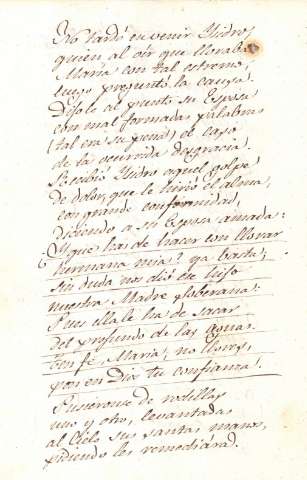 No tardó en venir Ysidro,
quien al oír que lloraba
María con tal estremo,
luego preguntó la causa.
Díjole al punto su Esposa
con mal formadas palabras
(tal era su pena) el caso
de la ocurrida desgracia.
Recibió Ysidro aquel golpe
de dolor, que le hirió el alma,
con grande conformidad,
diciendo a su Esposa amada:
Y que has de hacer con llorar
hermana mía? ya basta;
sin duda nos dió este hijo
nuestra Madre soberana:
Pues ella le ha de sacar
del profundo de las aguas.
Ten fé, María, no llores,
pon en Dios tu confianza.
Pusieronse de rodillas
uno y otro, levantadas
al Cielo sus santas manos,
pidiendo les remediára.